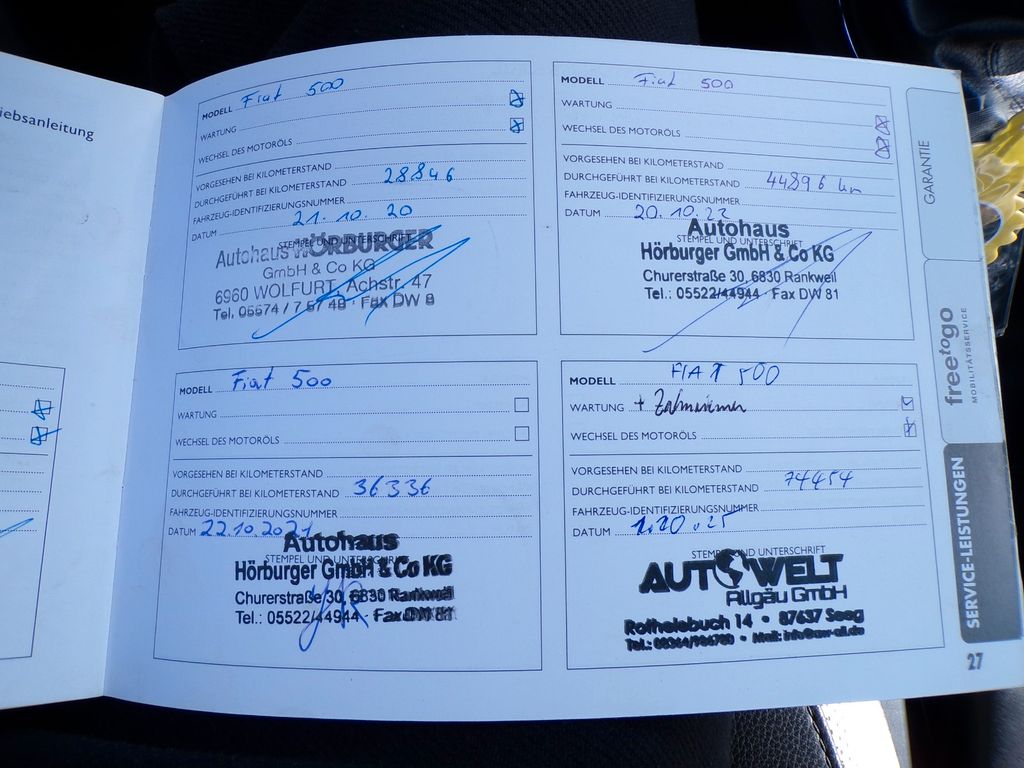 iebsanleitung
MODELL Fiat 500
WARTUNG
WECHSEL DES MOTORÖLS
VORGESEHEN BEI KILOMETERSTAND
DURCHGEFÜHRT BEI KILOMETERSTAND 28846
FAHRZEUG-IDENTIFIZIERUNGSNUMMER
DATUM 21.10.20
STEMPEL UND UNTERSCHRIFT
Autohaus HÖRBURGER
GmbH & Co KG
6960 WOLFURT, Achstr. 47
Tel. 05574 / 7 57 48 · Fax DW 8
MODELL Fiat 500
WARTUNG
WECHSEL DES MOTORÖLS
VORGESEHEN BEI KILOMETERSTAND
DURCHGEFÜHRT BEI KILOMETERSTAND 44896 km
FAHRZEUG-IDENTIFIZIERUNGSNUMMER
DATUM 20.10.22
STEMPEL UND UNTERSCHRIFT
Autohaus
Hörburger GmbH & Co KG
Churerstraße 30, 6830 Rankweil
Tel.: 05522/44944 Fax DW 81
MODELL Fiat 500
WARTUNG
WECHSEL DES MOTORÖLS
VORGESEHEN BEI KILOMETERSTAND
DURCHGEFÜHRT BEI KILOMETERSTAND 36336
FAHRZEUG-IDENTIFIZIERUNGSNUMMER
DATUM 22.10.2021
STEMPEL UND UNTERSCHRIFT
Autohaus
Hörburger GmbH & Co KG
Churerstraße 30, 6830 Rankweil
Tel.: 05522/44944 Fax DW 81
MODELL FIAT 500
WARTUNG +
WECHSEL DES MOTORÖLS
VORGESEHEN BEI KILOMETERSTAND
DURCHGEFÜHRT BEI KILOMETERSTAND 74454
FAHRZEUG-IDENTIFIZIERUNGSNUMMER
DATUM
STEMPEL UND UNTERSCHRIFT
AUTOWELT
Allgäu GmbH
Rothelebuch 14 • 87637 Seeg
GARANTIE
freetogo
MOBILITÄTSSERVICE
SERVICE-LEISTUNGEN
27